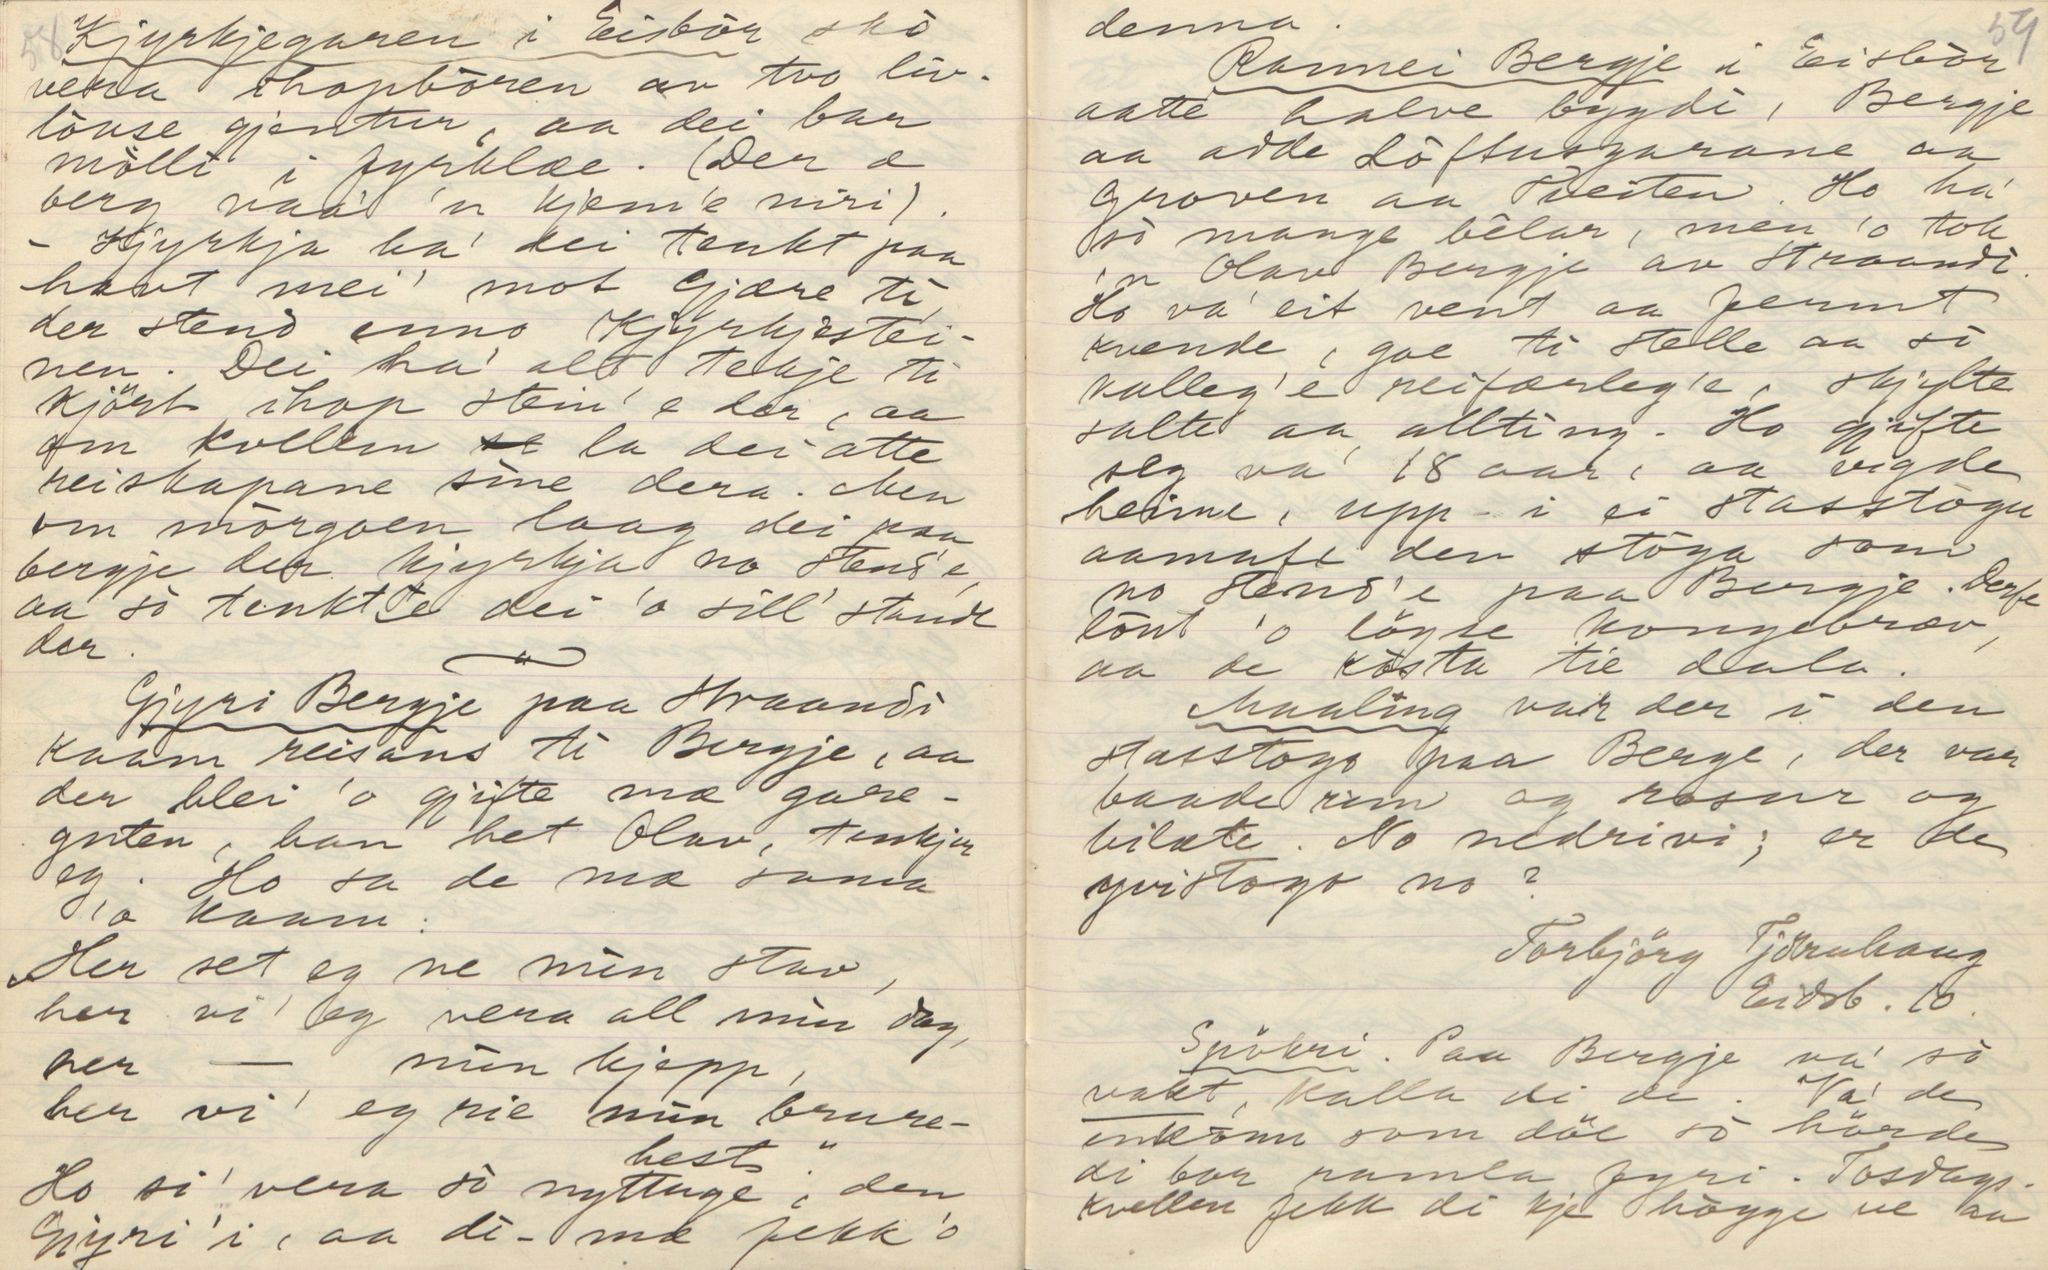 58
Kjyrkjegaren i Eisbòr skò
vera ihopbòren av tvo liv-
löuse gjentur, aa dei bar
mòlli i fyrklæ. (Der æ
berg naa' 'n kjem'e niri).
- Kjyrkja ha' dei tenkt paa
havt mei' mot Gjære ti
der stend enno Kjyrkjestei-
nen. Dei ha' alt tekje ti
kjört ihop stein'e der, aa
om kvellen la dei atte
reiskapane sine dera. Men
om mòrgoen laag dei paa
bergje der kjyrkja no stend'e,
aa sò tenkte dei 'o sill' stande
der.
Gjyri Bergje paa Straandi
kaam reisans ti Bergje, aa
der blei 'o gjifte mæ gare-
guten, han het Olav, tenkjer
eg. Ho sa de mæ sama
'o kaam:
"Her set eg ne min stav,
her vi' eg vera all min dag,
her — min kjepp,
her vi' eg rie min brure-
hest."
Ho si' vera sò nyttuge, den
Gjyri'i, aa di- mæ fekk 'o
59
denna.
Ramnei Bergje i Eisbòr
aatte halve bygdi, Bergje
aa adde Lòftusgarane aa
Groven aa Tveiten. Ho ha'
sò mange bêlar, men 'o tok
'n Olav Bergje av Straandi.
Ho va' eit vent aa fermt
kvende, goe ti stelle aa sò
kalleg'e reifærleg'e, skjylte
salte aa allting. Ho gjifte
seg va' 18 aar, aa vigde
heime, upp- i ei stasstògu
aamafe den stòga som
no stend'e paa Bergje. Derfe
lönt 'o löyse kongebrev,
aa de kòsta tie dala.
Maaling var der i den
stasstogo paa Berge, der var
baade rim og rosur og
bilæte. No nedrivi; er de
yvistogo no?
Torbjörg Tjörnhaug
Eidsb. 10.
Spökri. Paa Bergje va' sò
vakt, kalla di de. Va' de
einkònn som döe sò hörde
di bar ramla fyri. Tosdags-
kvellen fekk di kje hògge ve aa